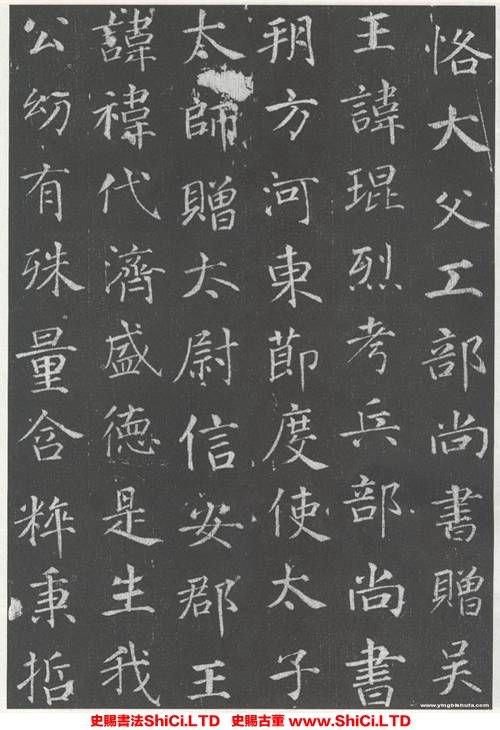 恪大父工部尚書贈吴
王諱琨烈考兵部尚書
朔方河東節度使太子
太師贈太尉信安郡王
諱禕代濟盛德是生我
公幼有殊量含粹秉哲
www.yingbishufa.com
史賜書法ShiCi.LTD 史賜古董 www.ShiCi.LTD